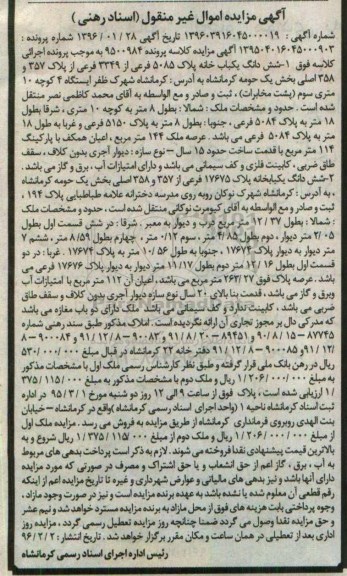 آگهی مزایده اموال غیر منقول (اسناد رهنی)
شماره آگهی : ۱۳۹۶۰۳۹۱۶۰۴۵۰۰۰۰۱۹ تاریخ آگهی ۲۸ / ۰۱ / ۱۳۹۶ شماره پرونده :
۱۳۹۵۰۴۰۱۶۰۴۵۰۰۰۹۰۳ آگهی مزایده کلاسه پرونده ۹۵۰۰۹۸۴ به موجب پرونده اجرائی
کلاسه فوق ۱-شش دانگ یکباب خانه پلاک ۵۰۸۵ فرعی از ۳۳۴۹ فرعی از پلاک ۳۵۷ و
۳۵۸ اصلی بخش یک حومه کرمانشاه به آدرس : کرمانشاه شهرک ظفر ایستگاه ۴ کوچه ۱۰
متری سوم (پشت مخابرات) ، ثبت و صادر و مع الواسطه به آقای محمد کاظمی نصر منتقل
شده است . حدود و مشخصات ملک : شمالا : بطول ۸ متر به کوچه ۱۰ متری ، شرقا بطول
۱۸ متر به پلاک ۵۰۸۴ فرعی ، جنوبا : بطول ۸ متر به پلاک ۵۱۵۰ فرعی و غربا به طول ۱۸
متر به پلاک ۵۰۸۴ فرعی می باشد . عرصه ملک ۱۴۴ متر مربع ، اعیان همکف با پارکینگ
۱۱۴ متر مربع با قدمت ساخت حدود ۱۵ سال – نوع سازه : دیوار آجری بدون کلاف ، سقف
طاق ضربی ، کابینت فلزی و کف سیمانی می باشد و دارای امتیازات آب ، برق و گاز می باشد .
۲-شش دانگ یکبابخانه پلاک ۱۷۶۷۵ فرعی از ۳۵۷ و ۳۵۸ اصلی بخش یک حومه کرمانشاه
، به آدرس : کرمانشاه شهرک نوکان روبه روی مدرسه دخترانه علامه طباطبایی پلاک ۱۹۴ ،
ثبت و صادر و مع الواسطه به آقای کیومرث نوکانی منتقل شده است ، حدود و مشخصات ملک
: شمالا : بطول ۳۷ / ۱۲ متر مربع درب و دیوار به معبر . شرقا : در شش قسمت اول بطول
۲/۰۵ متر دیوار ، دوم بطول ۴/۸۵ متر ، سوم ۰/۱۲ متر ، چهارم بطول ۸/۵۹ متر ، ششم ۷
متر دیوار به دیوار پلاک ۱۷۶۷۳ ، جنوبا به طول ۵۶ / ۱۰ متر به پلاک ۱۷۶۷۴ . غربا : در دو
قسمت اول بطول ۱۶ / ۱۲ متر دوم بطول ۱۱/۱۷ متر دیوار به دیوار پلاک ۱۷۶۷۶ فرعی می
باشد . عرصه پلاک فوق ۲۷ /۲۶۲ متر مربع می باشد ، اعیان آن ۱۱۲ متر مربع با امتیازات آب
وبرق و گاز می باشد ، قدمت بنا بالای ۲۰ سال نوع سازه دیوار آجری بدون کلاف و سقف طاق
ضربی می باشد ، کابینت ندارد و کف سیمانی می باشد . ملک دارای دو باب مغازه می باشد
که مدرکی دال بر مجوز تجاری آن ارائه نگردیده است . املاک مذکور طبق سند رهنی شماره
۸۷۲۴۵ – ۹۰/۸/۱۵ و ۸۹۴۵۱ - ۹۱/۸/۲۰ و ۹۰۰۸۳ – ۹۱/۱۲/۸ و ۹۰۰۸۴ – ۸
/ ۹۱/۱۲ و ۹۰۰۸۵ – ۹۱/۱۲/۸ دفتر خانه ۲۲ کرمانشاه در قبال مبلغ ۵۳۰/۰۰۰/۰۰۰
ریال در رهن بانک ملی قرار گرفته و طبق نظر کارشناس رسمی ملک اول با مشخصات مذکور
به مبلغ ۱/۲۰۶/۰۰۰/۰۰۰ ریال و ملک دوم با مشخصات مذکور به مبلغ ۳۷۵/۱۱۵/۰۰۰
/۱ ارزیابی شده است ، پلاک فوق از ساعت ۹ الی ۱۲ روز دو شنبه مورخ ۹۵/۳/۱ در اداره
ثبت اسناد کرمانشاه ناحیه ۱ (واحد اجرای اسناد رسمی کرمانشاه )واقع در کرمانشاه – خیابان
بنت الهدی روبروی فرمانداری کرمانشاه از طریق مزایده به فروش می رسد . مزایده ملک اول
از مبلغ ۱/۲۰۶/۰۰۰/۰۰۰ ریال و ملک دوم از مبلغ ۱/۳۷۵/۱۱۵/۰۰۰ ریال شروع و به
بالاترین قیمت پیشنهادی نقدا فروخته می شوند . لازم به ذکر است پرداخت بدهی های مربوط
به آب ، برق ، گاز اعم از حق انشعاب و یا حق اشتراک و مصرف در صورتی که مورد مزایده
دارای آنها باشد و نیز بدهی های مالیاتی و عوارض شهرداری و غیره تا تاریخ مزایده اعم از اینکه
رقم قطعی آن معلوم شده یا نشده باشد به عهده برنده مزایده است و نیز در صورت وجود مازاد ،
وجوه پرداختی بابت هزینه های فوق از محل مازاد به برنده مزایده مسترد خواهد شد و نیم عشر
و حق مزایده نقدا وصول می گردد ضمنا چنانچه روز مزایده تعطیل رسمی گردد ، مزایده روز
اداری بعد از تعطیلی در همان ساعت و مکان مقرر برگزار خواهد شد . تاریخ انتشار : ۹۶/۲/۲
رئیس اداره اجرای اسناد رسمی کرمانشاه